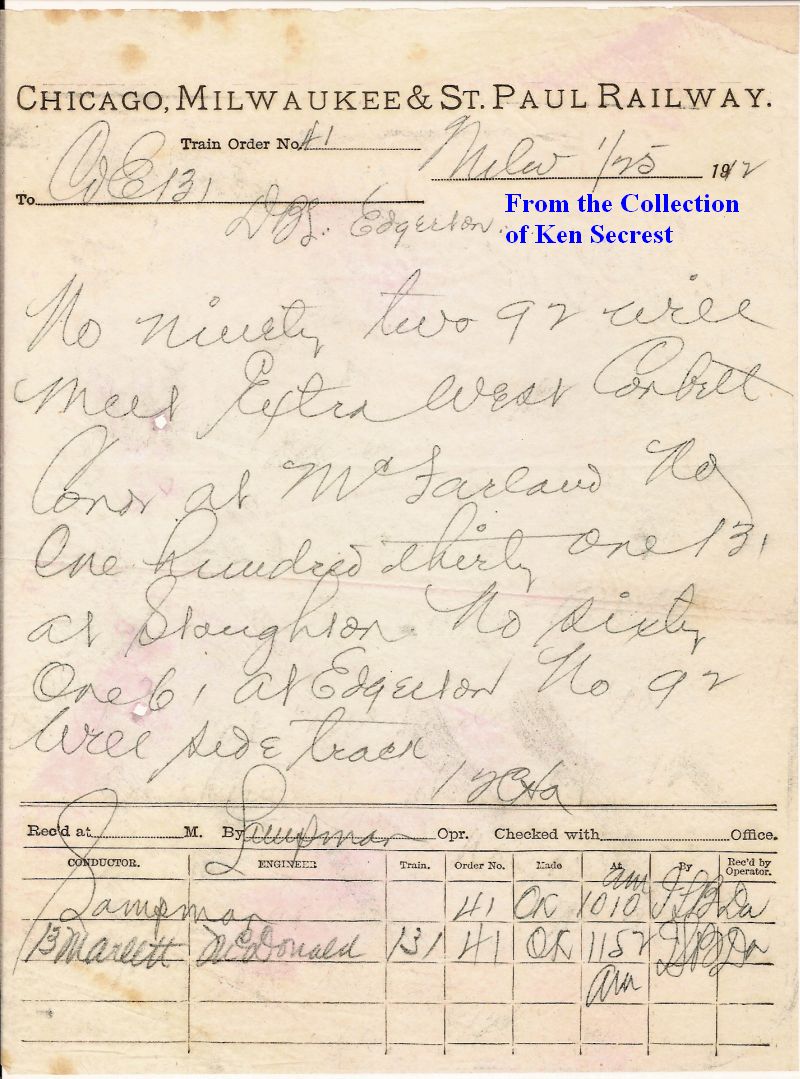 CHICAGO, MILWAUKEE & ST. PAUL RAILWAY.
Train Order No. 41
Milw 1/25 1912
To C&E 131
Edgerton.
From the Collection
of Ken Secrest
No ninety two 92 will
meet Extra West Corbett
Condr at McFarland No
One hundred thirty one 131
at Stoughton No sixty
One 61 at Edgerton No 92
will side track
Rec'd at M. By Lampman Opr. Checked with Office.
CONDUCTOR. ENGINEER Train. Order No. Made At By Rec'd by Operator.
Lampman 41 OK 1010 am Da
Marlett McDonald 131 41 OK 1152 am Da